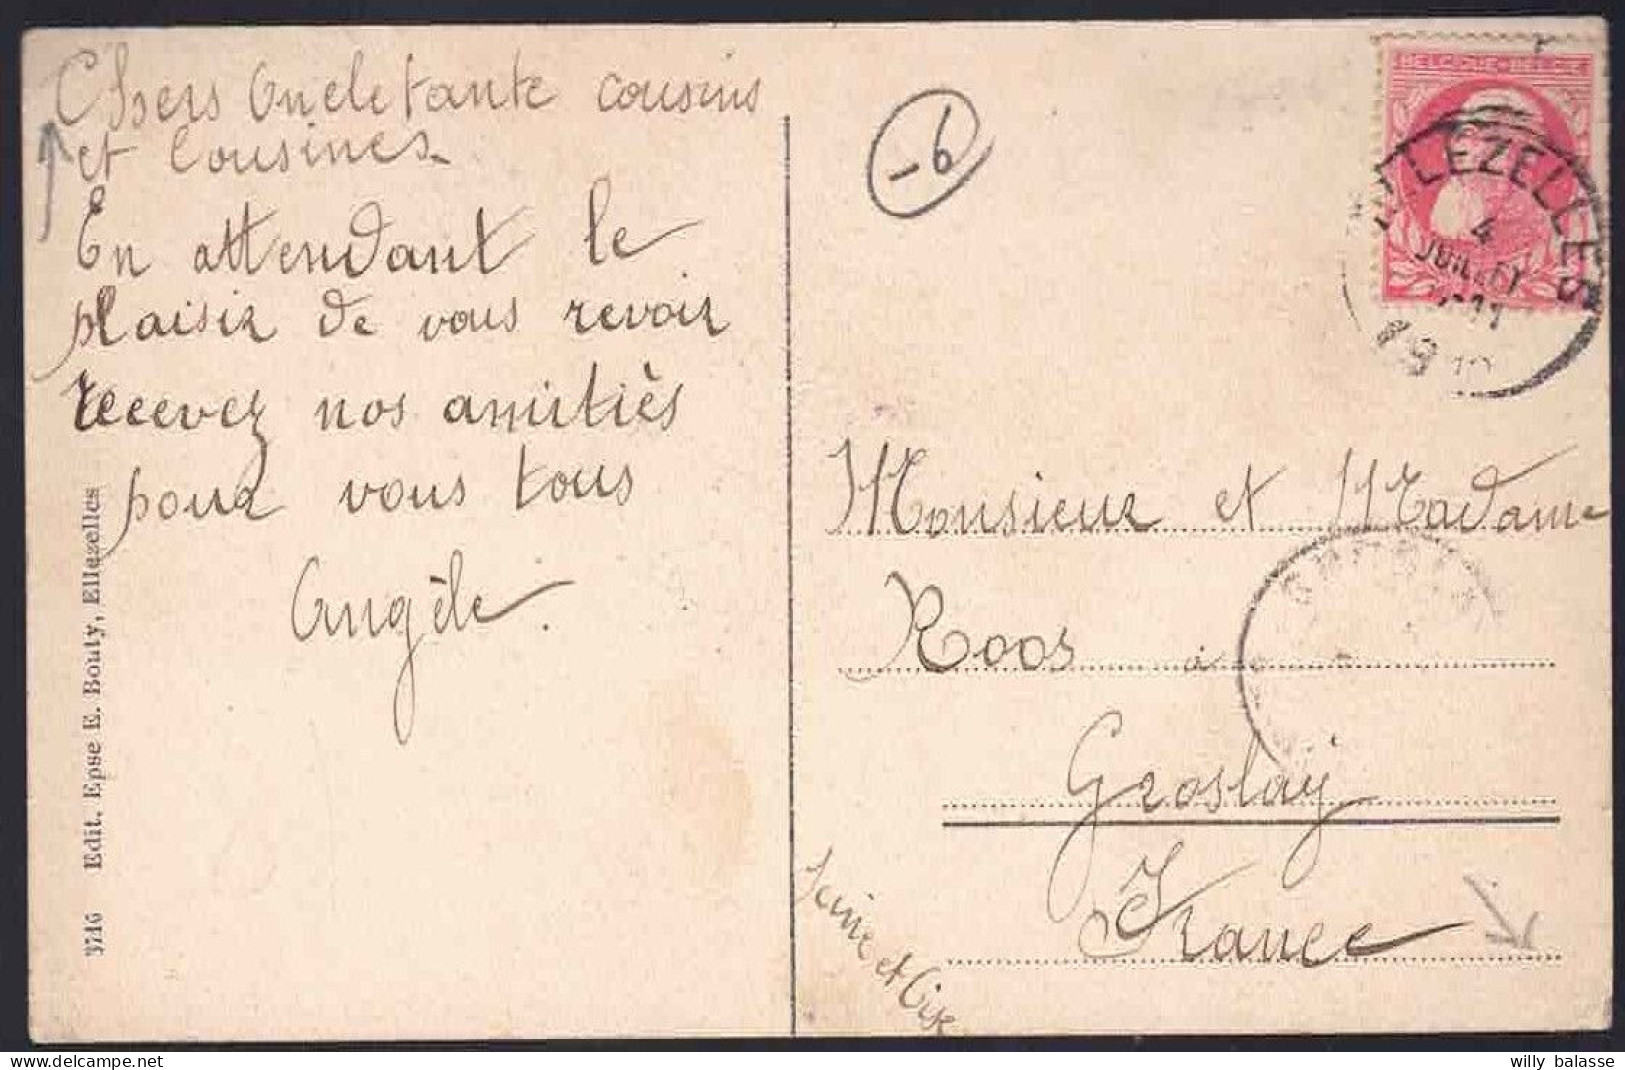 Chers Oncle tante cousins
et Cousines
En attendant le
plaisir de vous revoir
recevez nos amitiés
pour vous tous
Angèle.
3746 Edit. Epse E. Bouty, Ellezelles
-6
BELGIQUE-BELGIË
ELLEZELLES
4
JUILLET
19
Monsieur et Madame
Roos à
Groslay
France
Seine et Oise
willy balasse